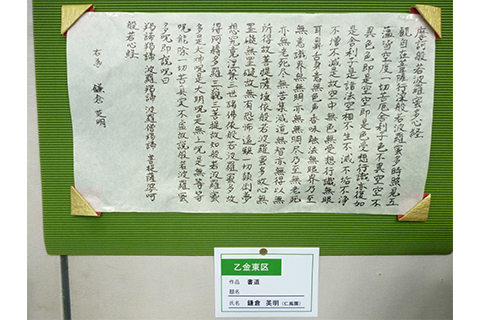 摩訶般若波羅蜜多心経
観自在菩薩行深般若波羅蜜多時照見五
蘊皆空度一切苦厄舎利子色不異空空不
異色色即是空空即是色受想行識亦復如
是舎利子是諸法空相不生不滅不垢不浄
不増不減是故空中無色無受想行識無眼
耳鼻舌身意無色声香味触法無眼界乃至
無意識界無無明亦無無明尽乃至無老死
亦無老死尽無苦集滅道無智亦無得以無
所得故菩提薩埵依般若波羅蜜多故心無
罣礙無罣礙故無有恐怖遠離一切顛倒夢
想究竟涅槃三世諸仏依般若波羅蜜多故
得阿耨多羅三藐三菩提故知般若波羅蜜
多是大神呪是大明呪是無上呪是無等等
呪能除一切苦真実不虚故説般若波羅蜜
多呪即説呪曰
羯諦羯諦 波羅羯諦 波羅僧羯諦 菩提薩婆訶
般若心経
右為 鎌倉 英明
乙金東区
作品 書道
題名
氏名 鎌倉 英明（仁風園）